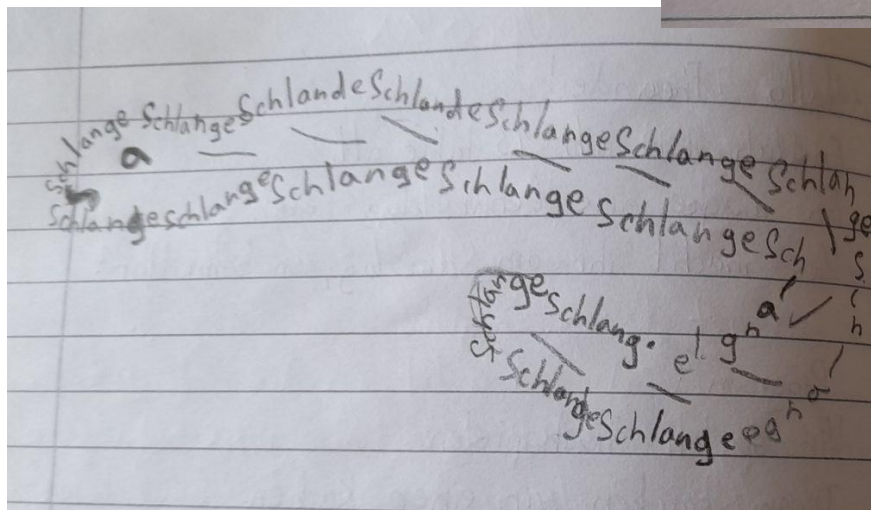 Schlange Schlange Schlande Schlande Schlange Schlange Schlan
ge
S
c
h
l
a
n
g
e
a
Schlange schlange Schlange Schlange Schlange Sch
l
a
n
g
e
Schlange Schlang
Schlange Schlange